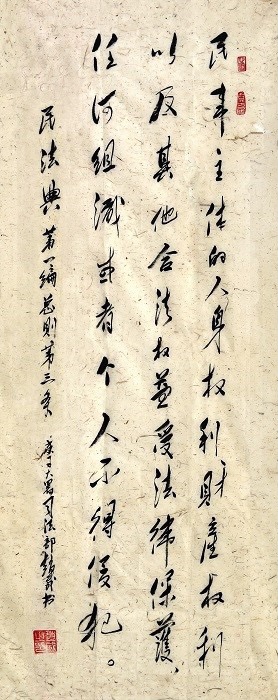 民事主体的人身权利财产权利
以及其他合法权益受法律保護、
任何组織或者个人不得侵犯。
民法典第一编总则第三条
庚子大暑司法部